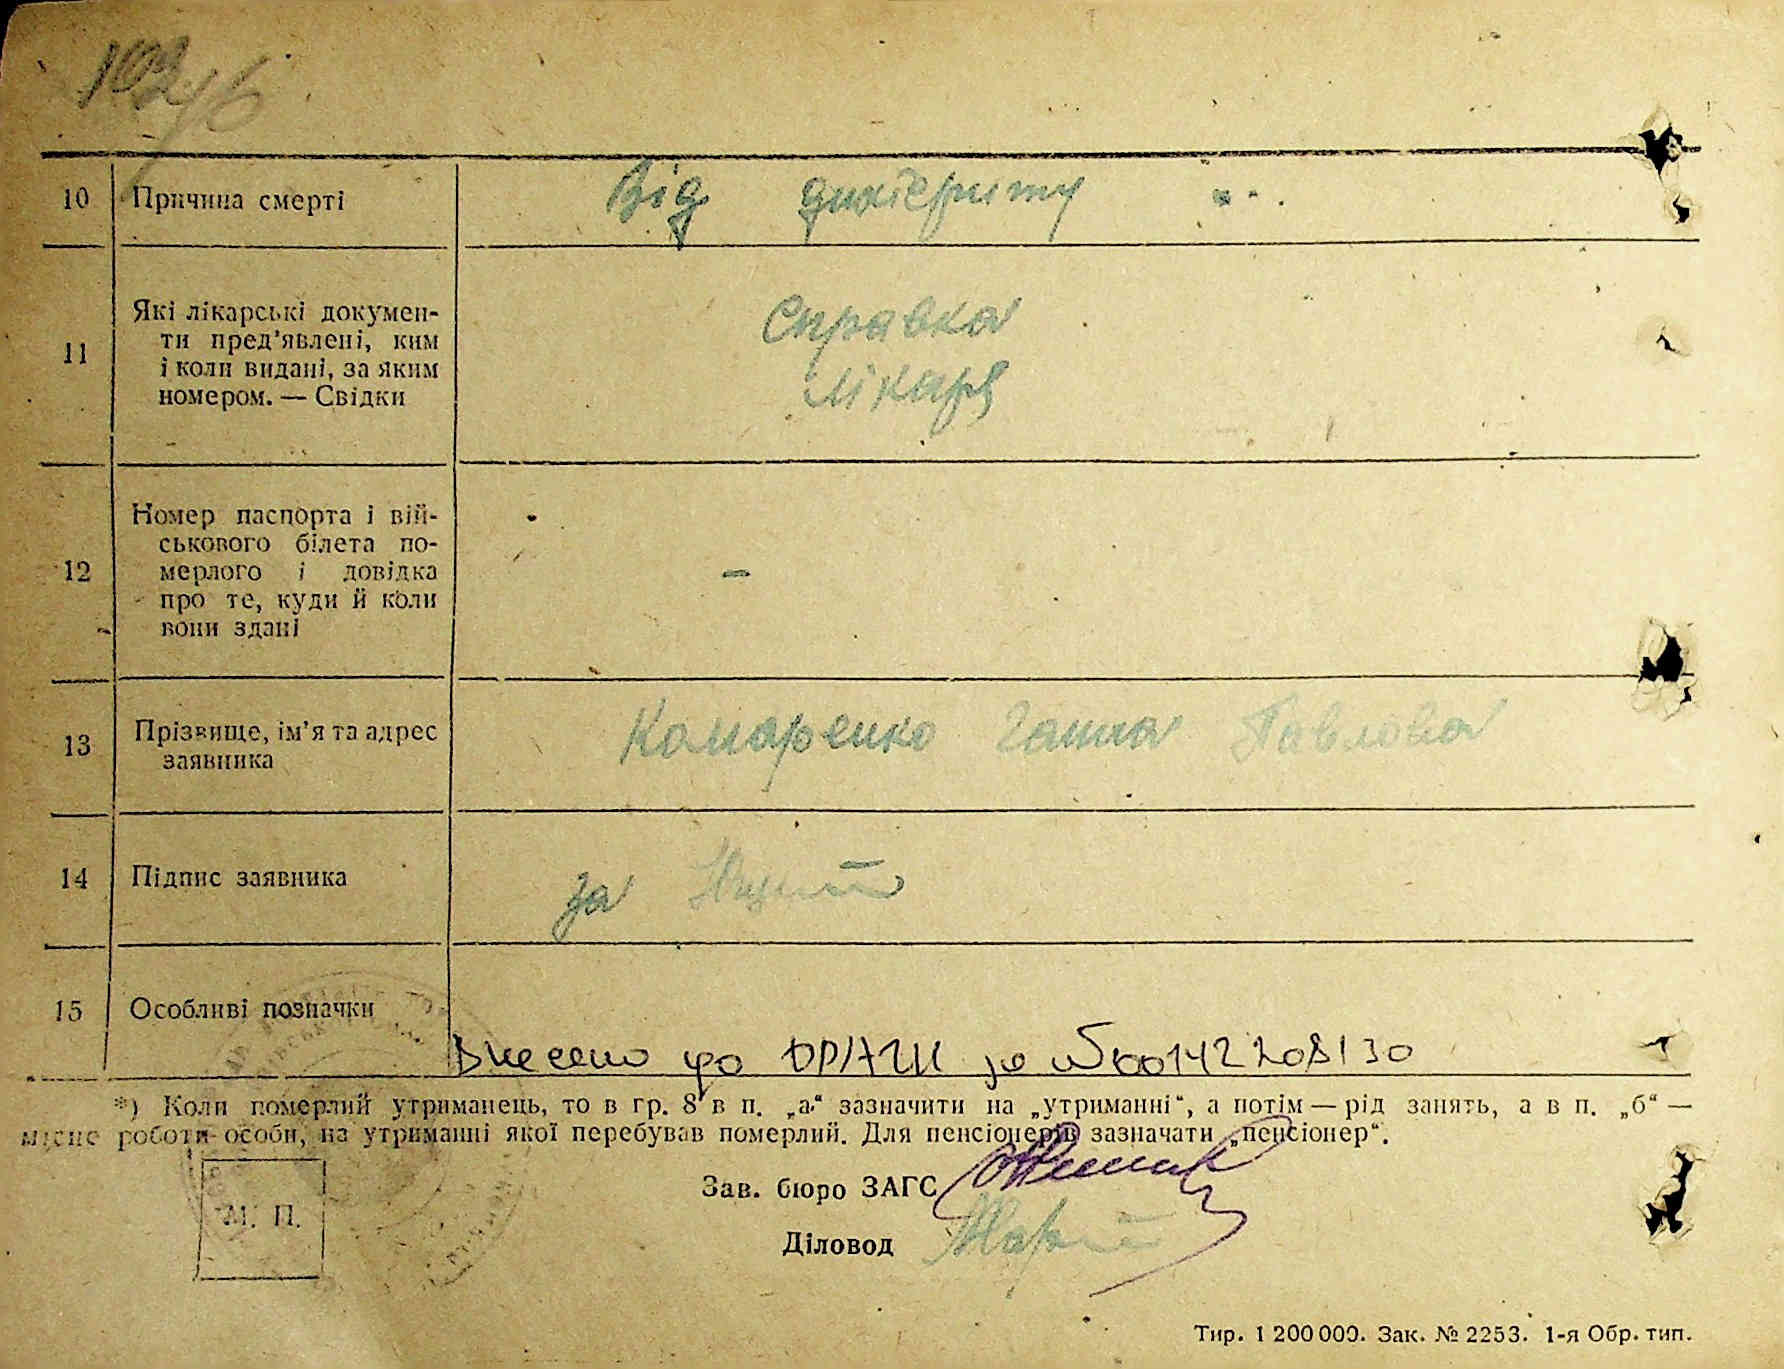 10 Причина смерті Від дихтериту
11 Які лікарські докумен-
ти пред'явлені, ким
і коли видані, за яким
номером. — Свідки
Справка
лікаря
12 Номер паспорта і вій-
ськового білета по-
мерлого і довідка
про те, куди й коли
вони здані
—
13 Прізвище, ім'я та адрес
заявника
Комаренко Ганна Павлова
14 Підпис заявника за
15 Особливі позначки
Внесено до ДРАЦС за №00142208130
*) Коли померлий утриманець, то в гр. 8 в п. „а“ зазначити на „утриманні“, а потім — рід занять, а в п. „б“ —
місце роботи особи, на утриманні якої перебував померлий. Для пенсіонерів зазначати „пенсіонер“.
М. П.
Зав. бюро ЗАГС
Діловод
Тир. 1 200 000. Зак. № 2253. 1-я Обр. тип.